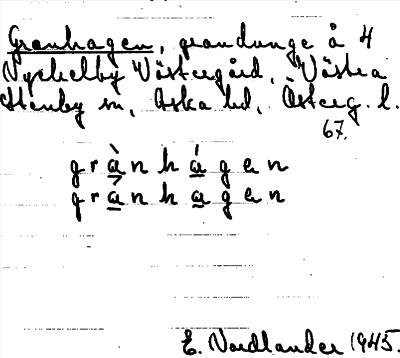 Granhagen, grandunge å 4
Nyckelby Västergård, Västra
Stenby sn, Aska hd, Österg. l.
67.
g r à n h á g e n
g r á n h a g e n
E. Nordlander 1945.